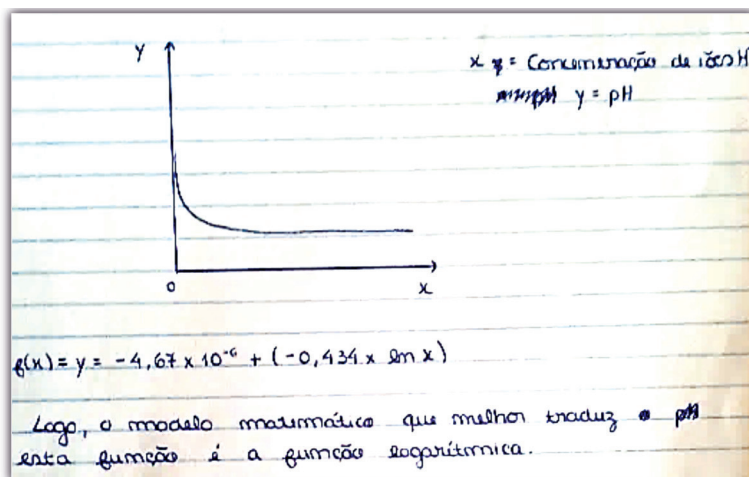 Y
x = Concentração de iões H
y = pH
0
x
f(x) = y = -4,67 x 10⁻⁶ + (-0,434 x ln x)
Logo, o modelo matemático que melhor traduz
esta função é a função logarítmica.